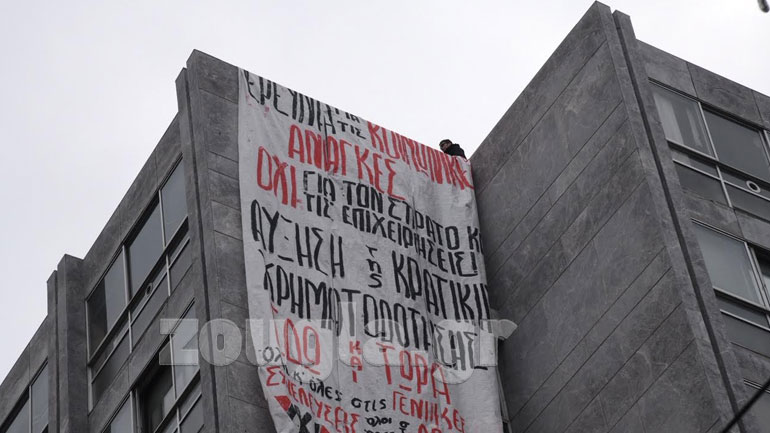 ΕΡΕΥΝΑ ΓΙΑ ΤΙΣ ΚΟΙΝΩΝΙΚ
ΑΝΑΓΚΕΣ
ΟΧΙ ΓΙΑ ΤΟΝ ΣΤΡΑΤΟ Κ
ΤΙΣ ΕΠΙΧΕΙΡΗΣΕΙΣ
ΑΥΞΗΣΗ της ΚΡΑΤΙΚΗΣ
ΧΡΗΜΑΤΟΔΟΤΗΣΗΣ
ΕΔΩ και ΤΩΡΑ
όλοι κ' όλες στις ΓΕΝΙΚΕΣ
ΣΥΝΕΛΕΥΣΕΙΣ όλοι
zougla.gr